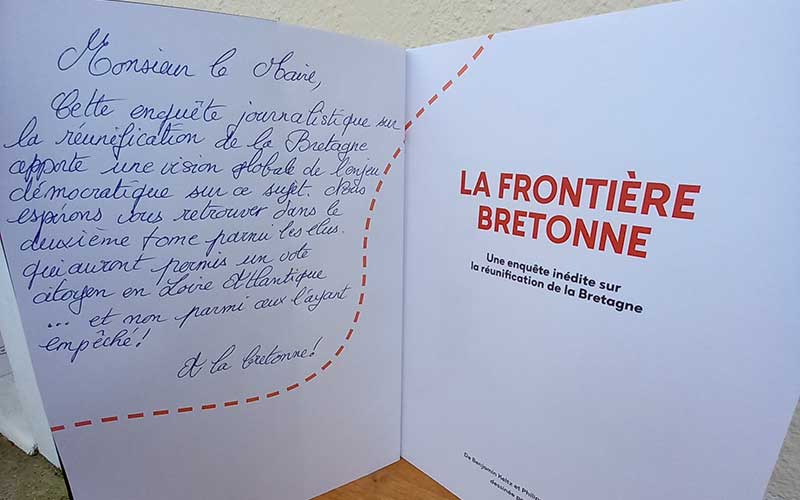 Monsieur le Maire,
Cette enquête journalistique sur
la réunification de la Bretagne
apporte une vision globale de l'enjeu
démocratique sur ce sujet. Nous
espérons vous retrouver dans le
deuxième tome parmi les élus
qui auront permis un vote
citoyen en Loire Atlantique
... et non parmi ceux l'ayant
empêché!
A la bretonne!
LA FRONTIÈRE
BRETONNE
Une enquête inédite sur
la réunification de la Bretagne
De Benjamin Keltz et
dessinée